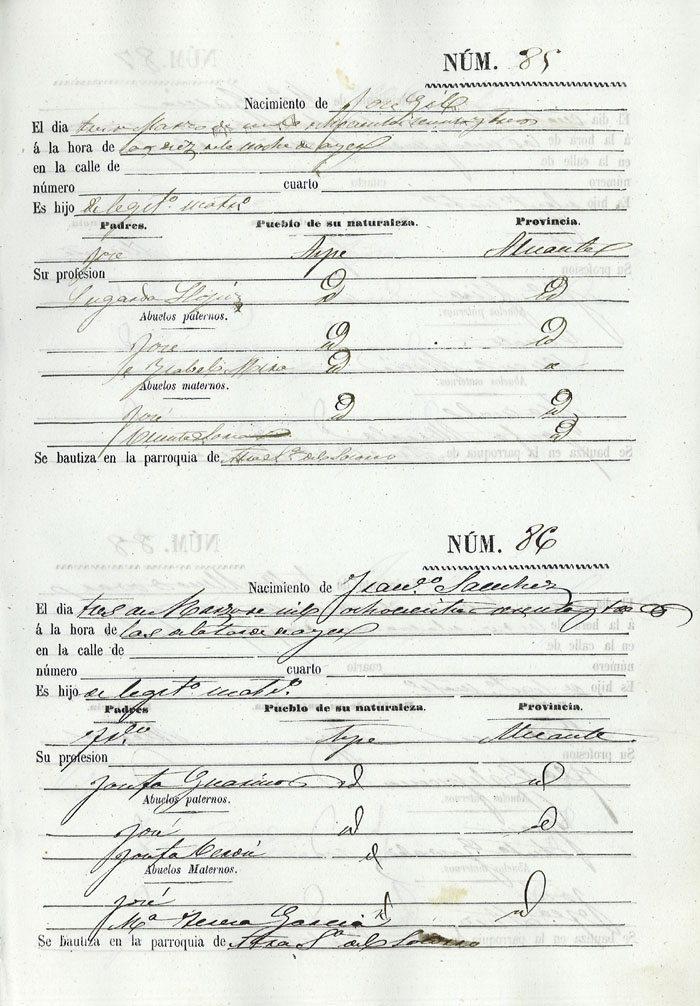 NÚM. 85
Nacimiento de José Gil
El día tres de Marzo de mil ochocientos sesenta y tres
á la hora de las diez de la noche de ayer
en la calle de
número cuarto
Es hijo de legit.º matr.º
Padres. Pueblo de su naturaleza. Provincia.
José Aspe Alicante
Su profesion
Lugarda id id
Abuelos paternos.
José id id
é Isabel Mira id
Abuelos maternos.
José id id
Vicenta id
Se bautiza en la parroquia de Ntra Sª del Socorro
NÚM. 86
Nacimiento de Franc.º Sanchez
El dia tres de Marzo de mil ochocientos sesenta y tres
á la hora de las de la tarde de ayer
en la calle de
número cuarto
Es hijo de legit.º matr.º
Padres Pueblo de su naturaleza. Provincia.
Fr.co Aspe Alicante
Su profesion
Josefa id id
Abuelos paternos.
José id id
Josefa id
Abuelos Maternos.
José
Mª Teresa Garcia id id
Se bautiza en la parroquia de Ntra Sª del Socorro